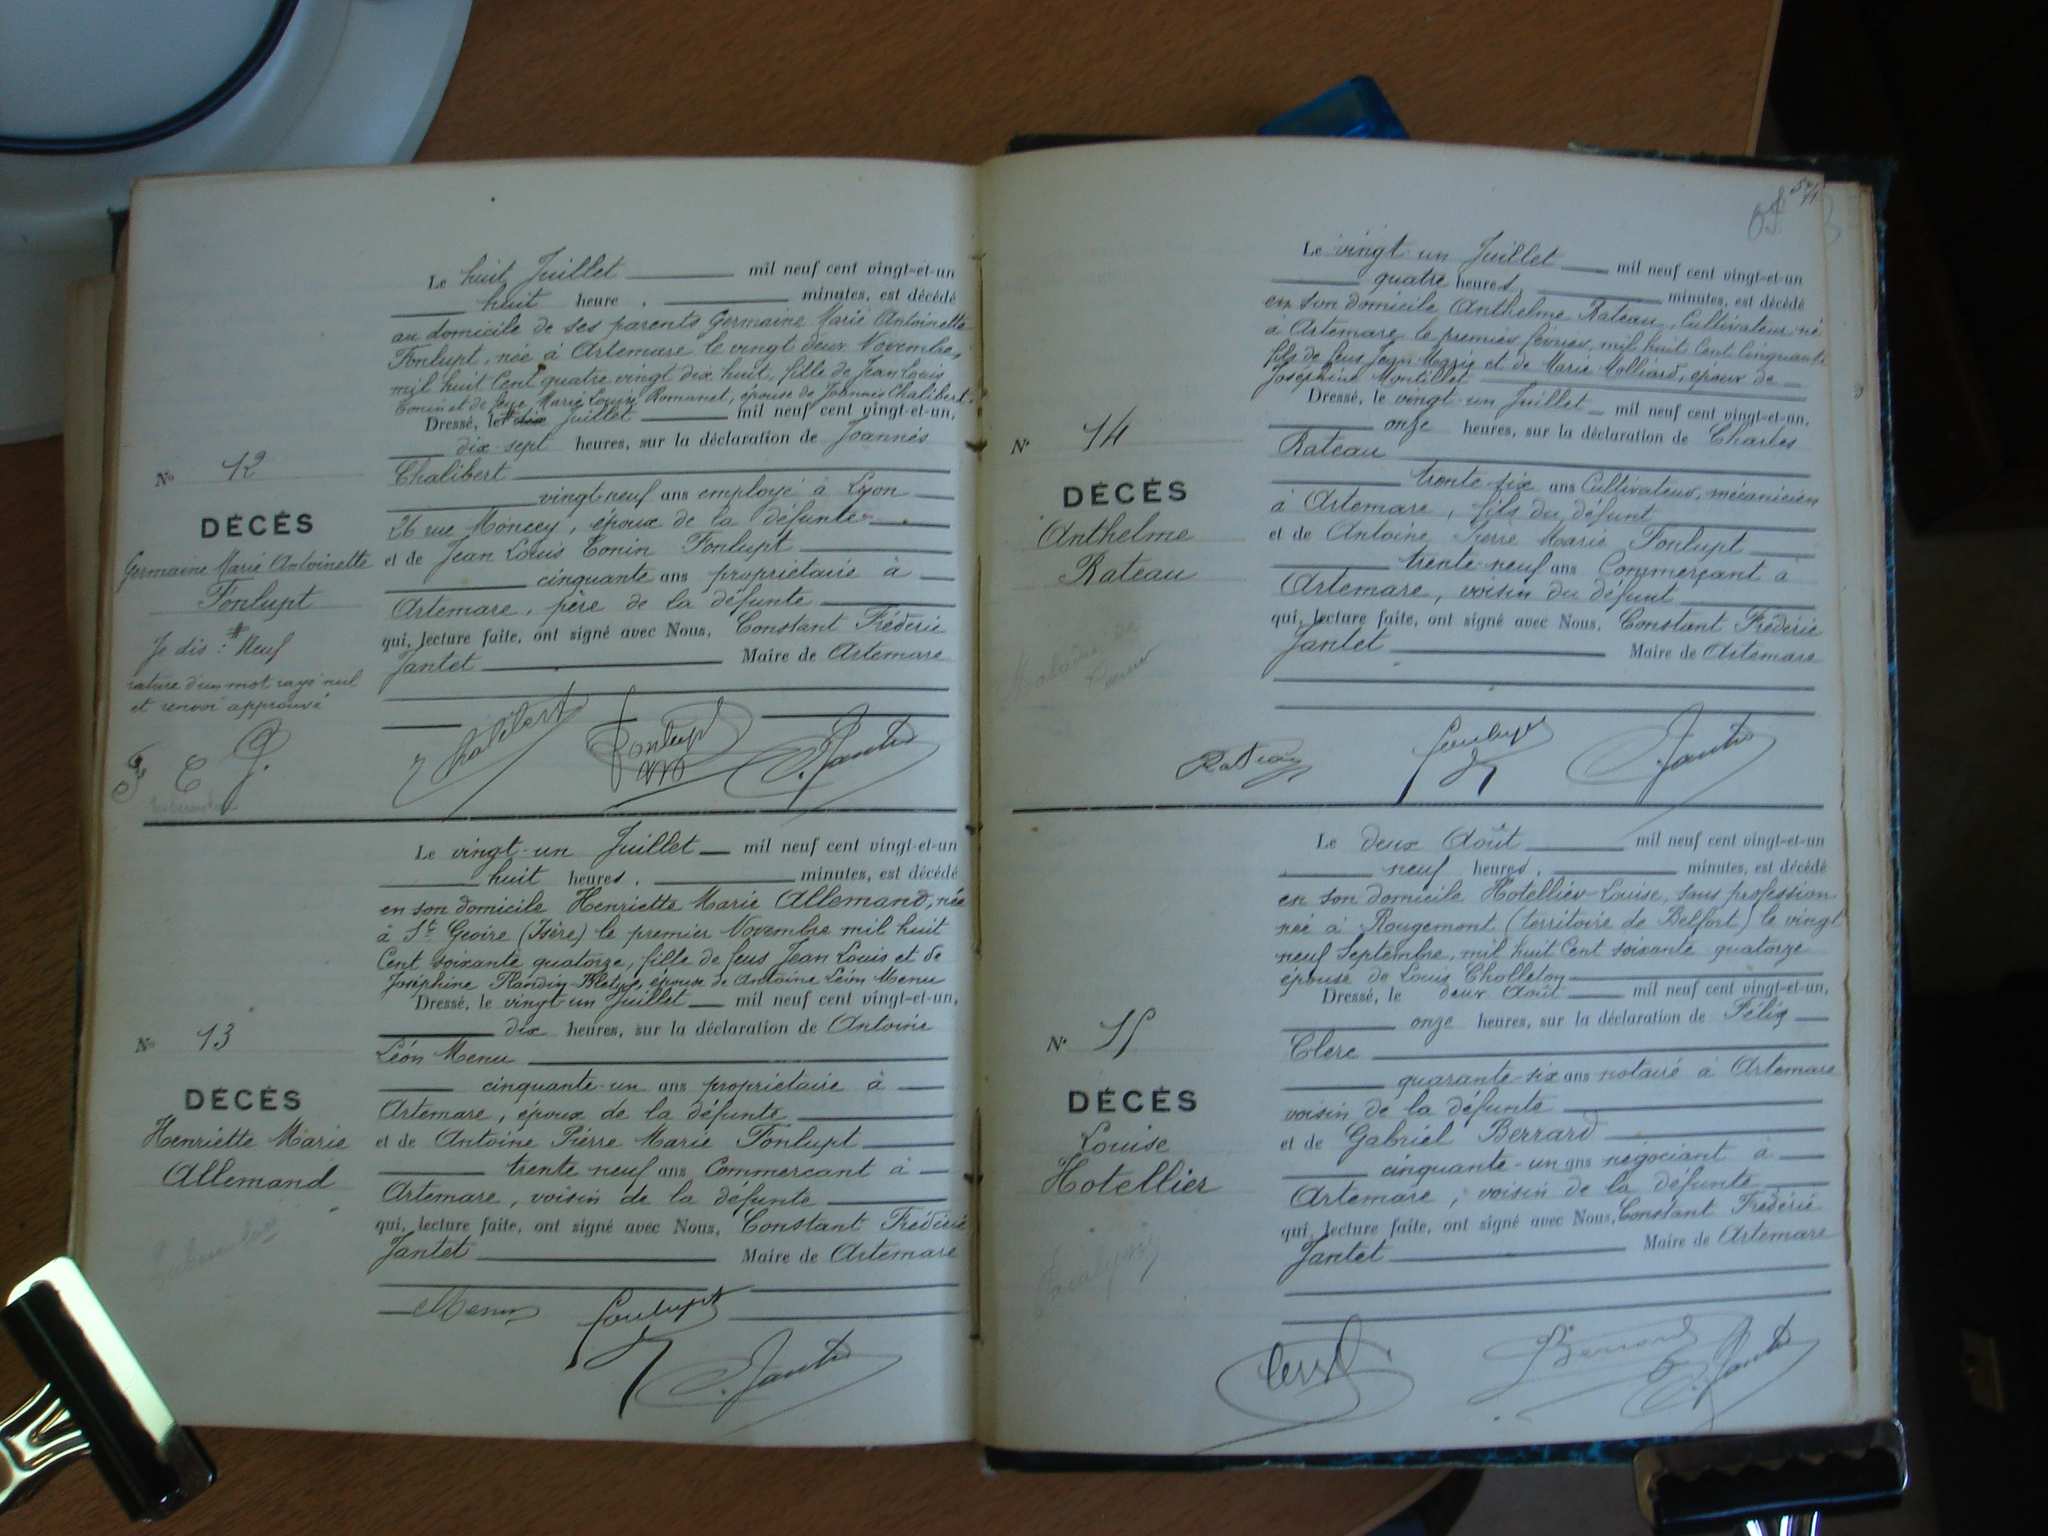 Le huit Juillet mil neuf cent vingt-et-un
huit heure, minutes, est décédé
au domicile de ses parents Germaine Marie Antoinette
Fonlupt, née à Artemare le vingt deux Novembre,
mil huit Cent quatre vingt dix huit, fille de Jean Louis
Tonin et de feue Marie Louise Romanet, épouse de Joannès Chalibert.
Dressé, le # Juillet mil neuf cent vingt-et-un,
dix-sept heures, sur la déclaration de Joannès
Chalibert
vingt-neuf ans employé à Lyon
26 rue Moncey, époux de la défunte
et de Jean Louis Tonin Fonlupt
cinquante ans propriétaire à
Artemare, père de la défunte
qui, lecture faite, ont signé avec Nous, Constant Frédéric
Jantet Maire de Artemare
No 12
DÉCÈS
Germaine Marie Antoinette
Fonlupt
#
Je dis : Neuf
rature d'un mot rayé nul
et renvoi approuvé
Chalibert Fonlupt C. Jantet
Le vingt-un Juillet mil neuf cent vingt-et-un
huit heures, minutes, est décédé
en son domicile Henriette Marie Allemand, née
à St Geoire (Isère) le premier Novembre mil huit
Cent soixante quatorze, fille de feus Jean Louis et de
Joséphine Flandin-Bléty, épouse de Antoine Léon Menu
Dressé, le vingt-un Juillet mil neuf cent vingt-et-un,
dix heures, sur la déclaration de Antoine
Léon Menu
cinquante-un ans propriétaire à
Artemare, époux de la défunte
et de Antoine Pierre Marie Fonlupt
trente neuf ans Commerçant à
Artemare, voisin de la défunte
qui, lecture faite, ont signé avec Nous, Constant Frédéric
Jantet Maire de Artemare
No 13
DÉCÈS
Henriette Marie
Allemand
Menu Fonlupt
C. Jantet
Le vingt-un Juillet mil neuf cent vingt-et-un
quatre heures, minutes, est décédé
en son domicile Anthelme Rateau, Cultivateur né
à Artemare le premier février mil huit Cent Cinquante
fils de feus Jean Mozzie et de Marie Molliard, époux de
Joséphine Montillet
Dressé, le vingt-un Juillet mil neuf cent vingt-et-un,
onze heures, sur la déclaration de Charles
Rateau
trente-six ans Cultivateur, mécanicien
à Artemare, fils du défunt
et de Antoine Pierre Marie Fonlupt
trente-neuf ans Commerçant à
Artemare, voisin du défunt
qui, lecture faite, ont signé avec Nous, Constant Frédéric
Jantet Maire de Artemare
No 14
DÉCÈS
Anthelme
Rateau
Rateau Fonlupt C. Jantet
Le deux Août mil neuf cent vingt-et-un
neuf heures, minutes, est décédé
en son domicile Hotellier Louise, sans profession
née à Rougemont (territoire de Belfort) le vingt
neuf Septembre, mil huit Cent soixante quatorze
épouse de Louis Cholleton
Dressé, le deux Août mil neuf cent vingt-et-un,
onze heures, sur la déclaration de Félix
Clerc
quarante-six ans notaire à Artemare
voisin de la défunte
et de Gabriel Berrard
cinquante-un ans négociant à
Artemare, voisin de la défunte
qui, lecture faite, ont signé avec Nous, Constant Frédéric
Jantet Maire de Artemare
No 15
DÉCÈS
Louise
Hotellier
Clerc Berrard C. Jantet